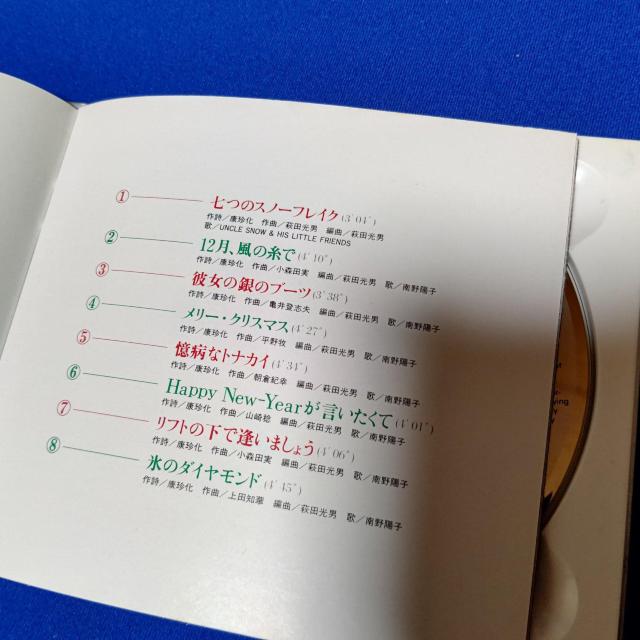 ① 七つのスノーフレイク(3'04")
作詩/康珍化 作曲/萩田光男 編曲/萩田光男
歌/UNCLE SNOW & HIS LITTLE FRIENDS
② 12月、風の糸で(4'10")
作詩/康珍化 作曲/小森田実 編曲/萩田光男 歌/南野陽子
③ 彼女の銀のブーツ(3'38")
作詩/康珍化 作曲/亀井登志夫 編曲/萩田光男 歌/南野陽子
④ メリー・クリスマス(4'27")
作詩/康珍化 作曲/平野牧 編曲/萩田光男 歌/南野陽子
⑤ 憶病なトナカイ(4'34")
作詩/康珍化 作曲/朝倉紀幸 編曲/萩田光男 歌/南野陽子
⑥ Happy New-Yearが言いたくて(4'01")
作詩/康珍化 作曲/山崎稔 編曲/萩田光男 歌/南野陽子
⑦ リフトの下で逢いましょう(4'06")
作詩/康珍化 作曲/小森田実 編曲/萩田光男 歌/南野陽子
⑧ 氷のダイヤモンド(4'45")
作詩/康珍化 作曲/上田知華 編曲/萩田光男 歌/南野陽子